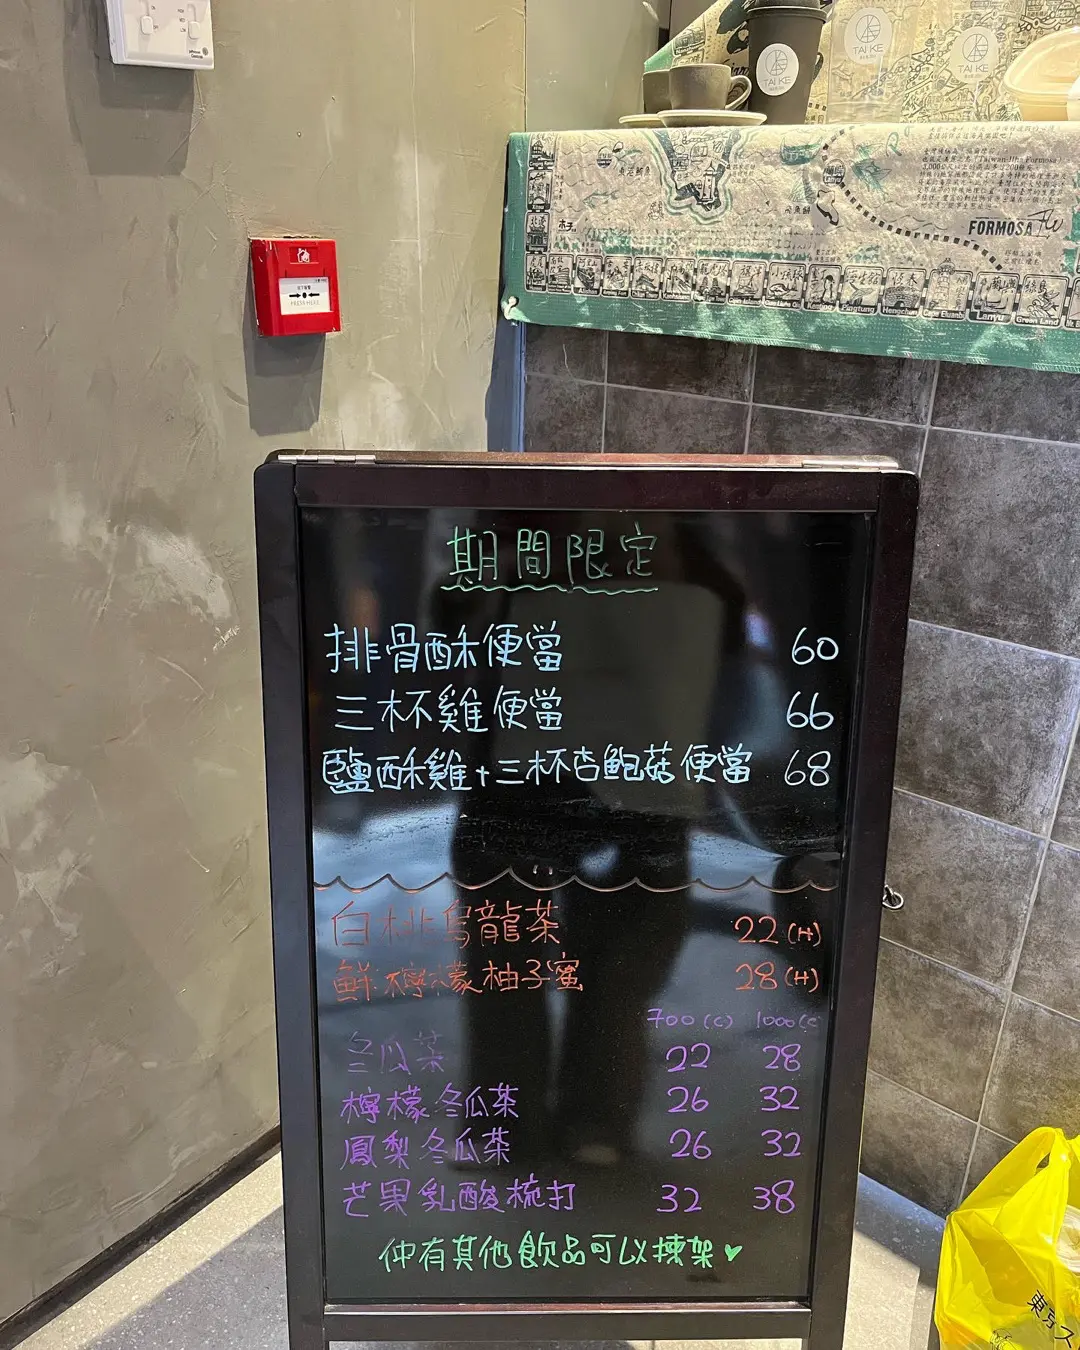 TAI KE
TAI KE
TAI KE
FORMOSA
Hengchun
Lanyu
Green Land
PRESS HERE
期間限定
排骨酥便當 60
三杯雞便當 66
鹽酥雞+三杯杏鮑菇便當 68
白桃烏龍茶 22(H)
鮮檸檬柚子蜜 28(H)
700(c) 1000(c
冬瓜茶 22 28
檸檬冬瓜茶 26 32
鳳梨冬瓜茶 26 32
芒果乳酸梳打 32 38
仲有其他飲品可以揀架♥
東京ス